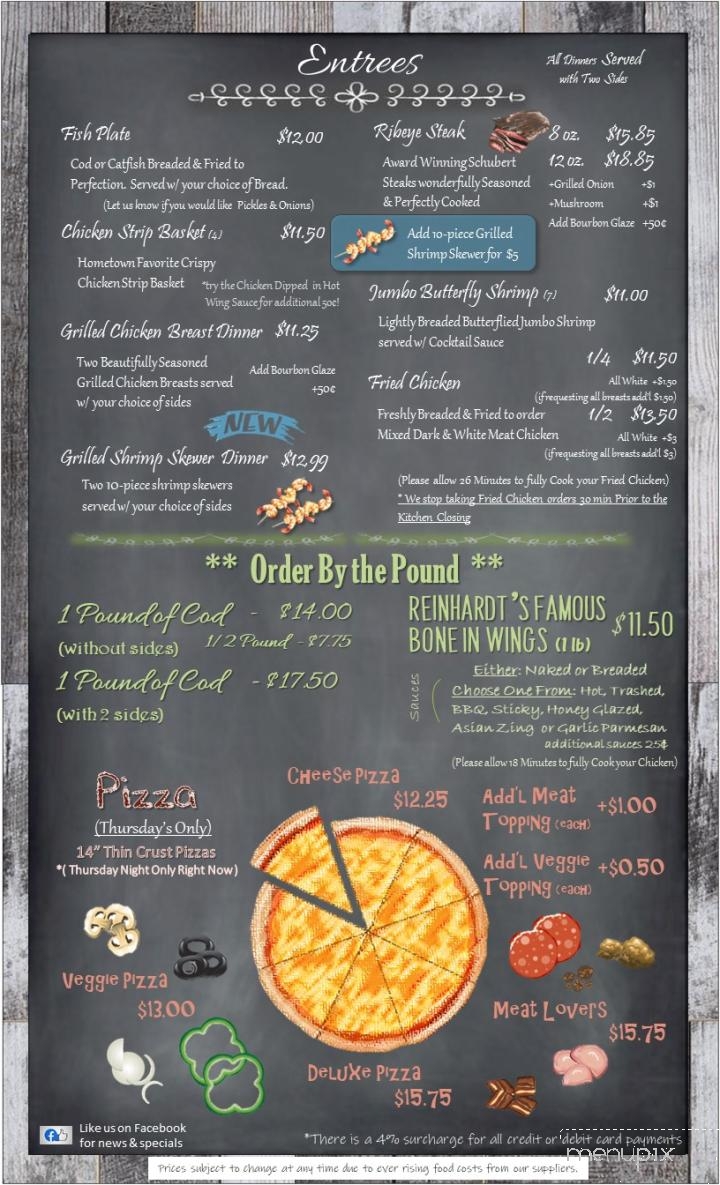 Entrees
All Dinners Served
with Two Sides
Fish Plate $12.00
Cod or Catfish Breaded & Fried to
Perfection. Served w/ your choice of Bread.
(Let us know if you would like Pickles & Onions)
Chicken Strip Basket (4) $11.50
Hometown Favorite Crispy
Chicken Strip Basket
*try the Chicken Dipped in Hot
Wing Sauce for additional 50¢!
Grilled Chicken Breast Dinner $11.25
Two Beautifully Seasoned
Grilled Chicken Breasts served
w/ your choice of sides
Add Bourbon Glaze
+50¢
NEW
Grilled Shrimp Skewer Dinner $12.99
Two 10-piece shrimp skewers
served w/ your choice of sides
Ribeye Steak 8 oz. $15.85
12 oz. $18.85
Award Winning Schubert
Steaks wonderfully Seasoned
& Perfectly Cooked
+Grilled Onion +$1
+Mushroom +$1
Add Bourbon Glaze +50¢
Add 10-piece Grilled
Shrimp Skewer for $5
Jumbo Butterfly Shrimp (7) $11.00
Lightly Breaded Butterflied Jumbo Shrimp
served w/ Cocktail Sauce
1/4 $11.50
Fried Chicken
All White +$1.50
(if requesting all breasts add'l $1.50)
Freshly Breaded & Fried to order
Mixed Dark & White Meat Chicken
1/2 $13.50
All White +$3
(if requesting all breasts add'l $3)
(Please allow 26 Minutes to fully Cook your Fried Chicken)
* We stop taking Fried Chicken orders 30 min Prior to the
Kitchen Closing
** Order By the Pound **
1 Pound of Cod - $14.00
(without sides) 1/2 Pound - $7.75
1 Pound of Cod - $17.50
(with 2 sides)
REINHARDT'S FAMOUS
BONE IN WINGS (1 lb) $11.50
Sauces
Either: Naked or Breaded
Choose One From: Hot, Trashed,
BBQ, Sticky, Honey Glazed,
Asian Zing or Garlic Parmesan
additional sauces 25¢
(Please allow 18 Minutes to fully Cook your Chicken)
Pizza
(Thursday's Only)
14" Thin Crust Pizzas
*( Thursday Night Only Right Now )
Cheese Pizza
$12.25
Add'l Meat
Topping (each) +$1.00
Add'l Veggie
Topping (each) +$0.50
Veggie Pizza
$13.00
Meat Lovers
$15.75
Deluxe Pizza
$15.75
Like us on Facebook
for news & specials
*There is a 4% surcharge for all credit or debit card payments
menupix
Prices subject to change at any time due to ever rising food costs from our suppliers.